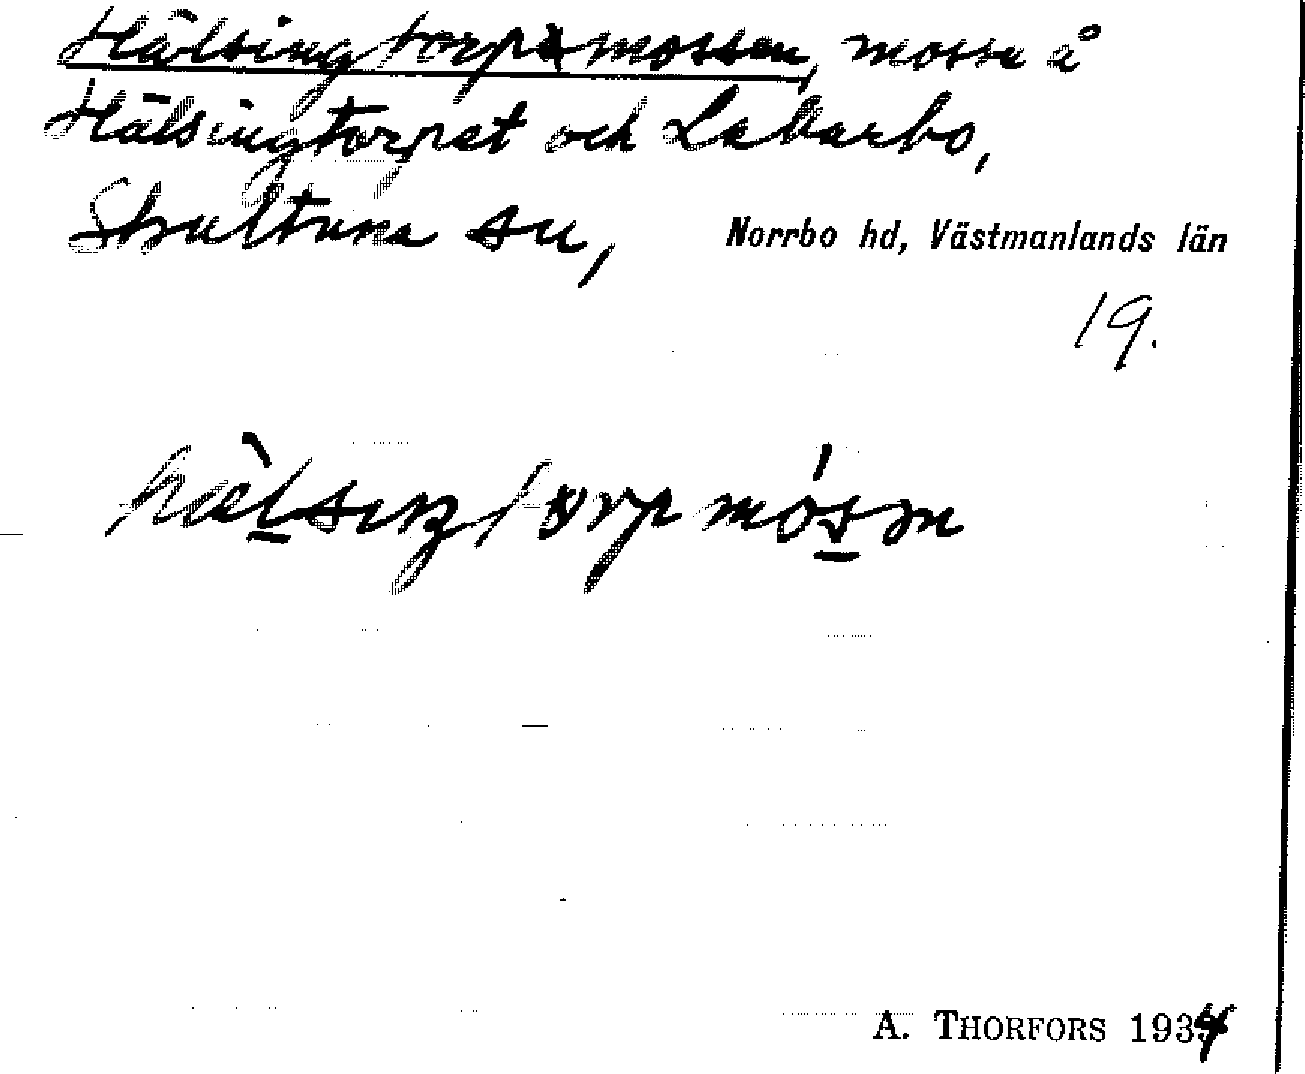 Hälsingtorpsmossen, mosse å
Hälsingtorpet och Lakarbo,
Skultuna sn, Norrbo hd, Västmanlands län
19.
A. THORFORS 1934